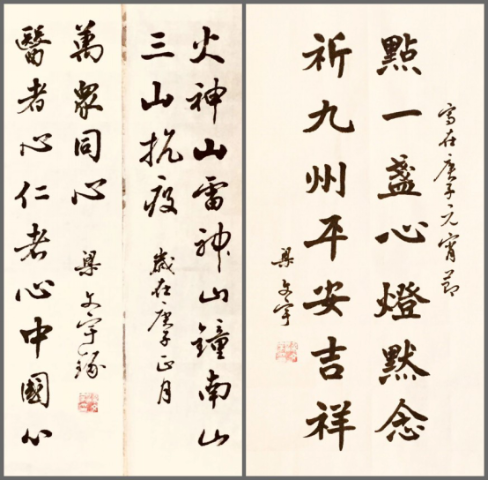 火神山雷神山鐘南山
三山抗疫 歲在庚子正月
醫者心仁者心中國心
萬眾同心 梁文宇
寫在庚子元宵節
點一盞心燈默念
祈九州平安吉祥
梁文宇